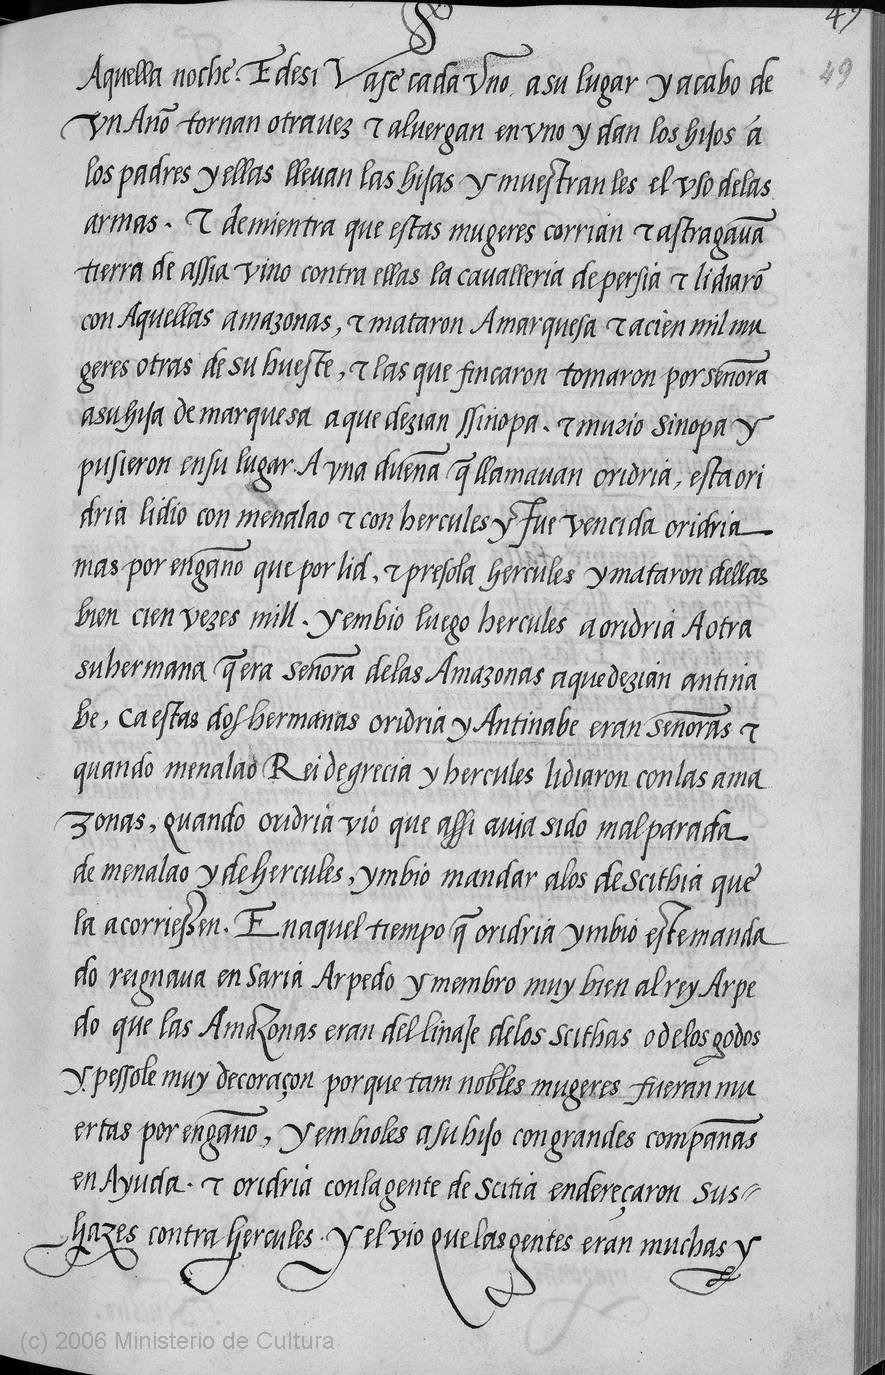 49
49
Aquella noche. E desi Vase cada vno a su lugar y acabo de
vn Año tornan otra uez ⁊ aluergan en vno y dan los hijos á
los padres y ellas lleuan las hijas y muestran les el vso delas
armas. ⁊ demientra que estas mugeres corrian ⁊ astragauã
tierra de assia vino contra ellas la caualleria de persia ⁊ lidiarõ
con Aquellas amazonas, ⁊ mataron Amarquesa ⁊ acien mil mu
geres otras de su hueste, ⁊ las que fincaron tomaron por señora
asu hija de marquesa aque dezian ssinopa. ⁊ murio sinopa y
pusieron ensu lugar A vna dueña q̃ llamauan oridria, esta ori
dria lidio con menalao ⁊ con hercules y fue vencida oridria
mas por engaño que por lid, ⁊ presola hercules y mataron dellas
bien cien vezes mill. y embio luego hercules a oridria A otra
su hermana q̃ era señora delas Amazonas aque dezian antina
be, ca estas dos hermanas oridria y Antinabe eran señoras ⁊
quando menalao Rei de grecia y hercules lidiaron con las ama
zonas, quando oridria vió que assi auia sido malparada
de menalao y de hercules, ymbió mandar alos de scithia que
la acorriessen. En aquel tiempo q̃ oridria ymbió este manda
do reignaua en Saria Arpedo y membro muy bien al rey Arpe
do que las Amazonas eran del linaje delos scithas o delos godos
y pessole muy de coraçon por que tam nobles mugeres fueran mu
ertas por engaño, y embioles a su hijo con grandes compañas
en Ayuda. ⁊ oridria con la gente de scitia endereçaron sus
hazes contra hercules. y el vio que las gentes eran muchas y
(c) 2006 Ministerio de Cultura